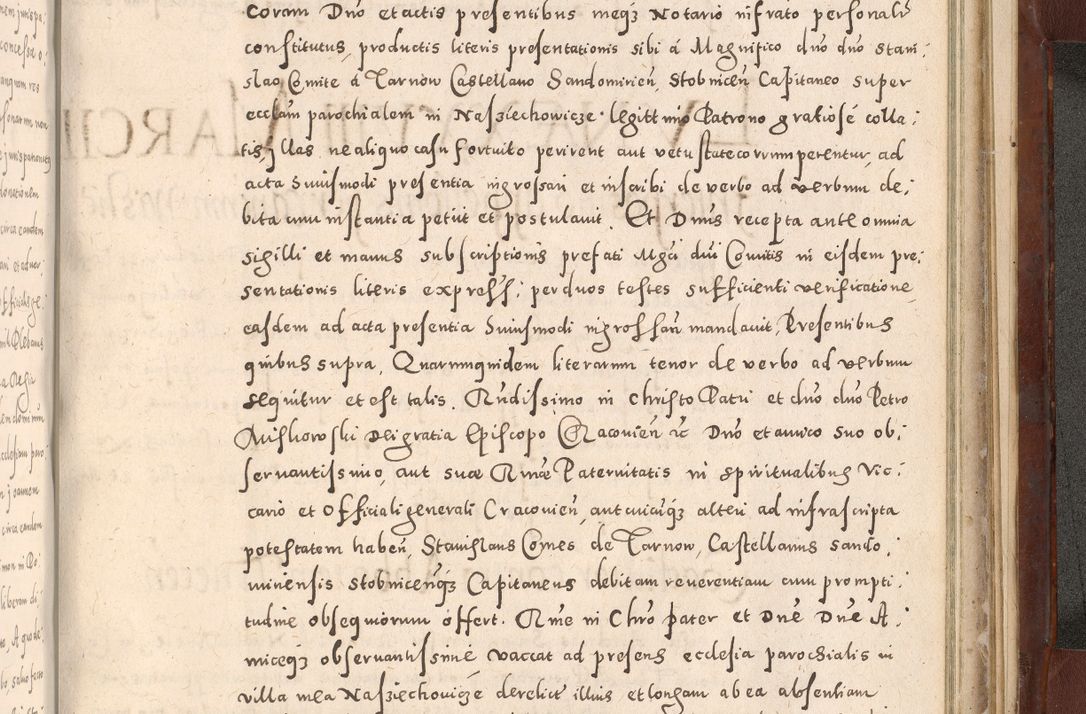 Coram Dno et actis presentibus meq3 Notario infrato personalr
constitutus, productis literis presentationis sibi á Magnifico dno dno Stani:
slao Comite á Tarnow Castellano Sandomirien̄ Stobnicen̄ Capitaneo super
eccl̄am parochialem in Nasziechowicze legittimo Patrono gratiosé colla:
tis, Illas ne aliquo casu fortuito perirent aut vetustate corrumperentur, ad
acta huiusmodi presentia ingrossari et inscribi de verbo ad verbum de:
bita cum instantia petiit et postulauit. Et Dnus recepta ante omnia
sigilli et manus subscriptionis prefati Mgci dni Comitis in eisdem pre:
sentationis literis express: per duos testes sufficienti verificatione
easdem ad acta presentia huiusmodi ingrossan̄ mandauit, Presentibus
quibus supra, Quarumquidem literarum tenor de verbo ad verbum
sequitur et est talis. Rndissimo in Christo Patri et dno dno Petro
Miskowski Dei gratia Episcopo Cracouien̄ &c Dno et amico suo ob:
seruantissimo, aut suæ Rmæ Paternitatis in spiritualibus Vic:
cario et Officiali generali Cracouien̄, aut cuicuq3 alteri ad infrascripta
potestatem haben̄, Stanislaus Comes de Tarnow, Castellanus sando:
miriensis Stobnicen̄q3 Capitaneus debitam reuerentiam cum prompti:
tudine obsequiorum offert. Rme in Chro pater et Dne Dne A:
miceq3 obseruantissime vaccat ad presens ecclesia parochialis in
villa mea Nasziechowicze derelict̄ illius et longam ab ea absentiam